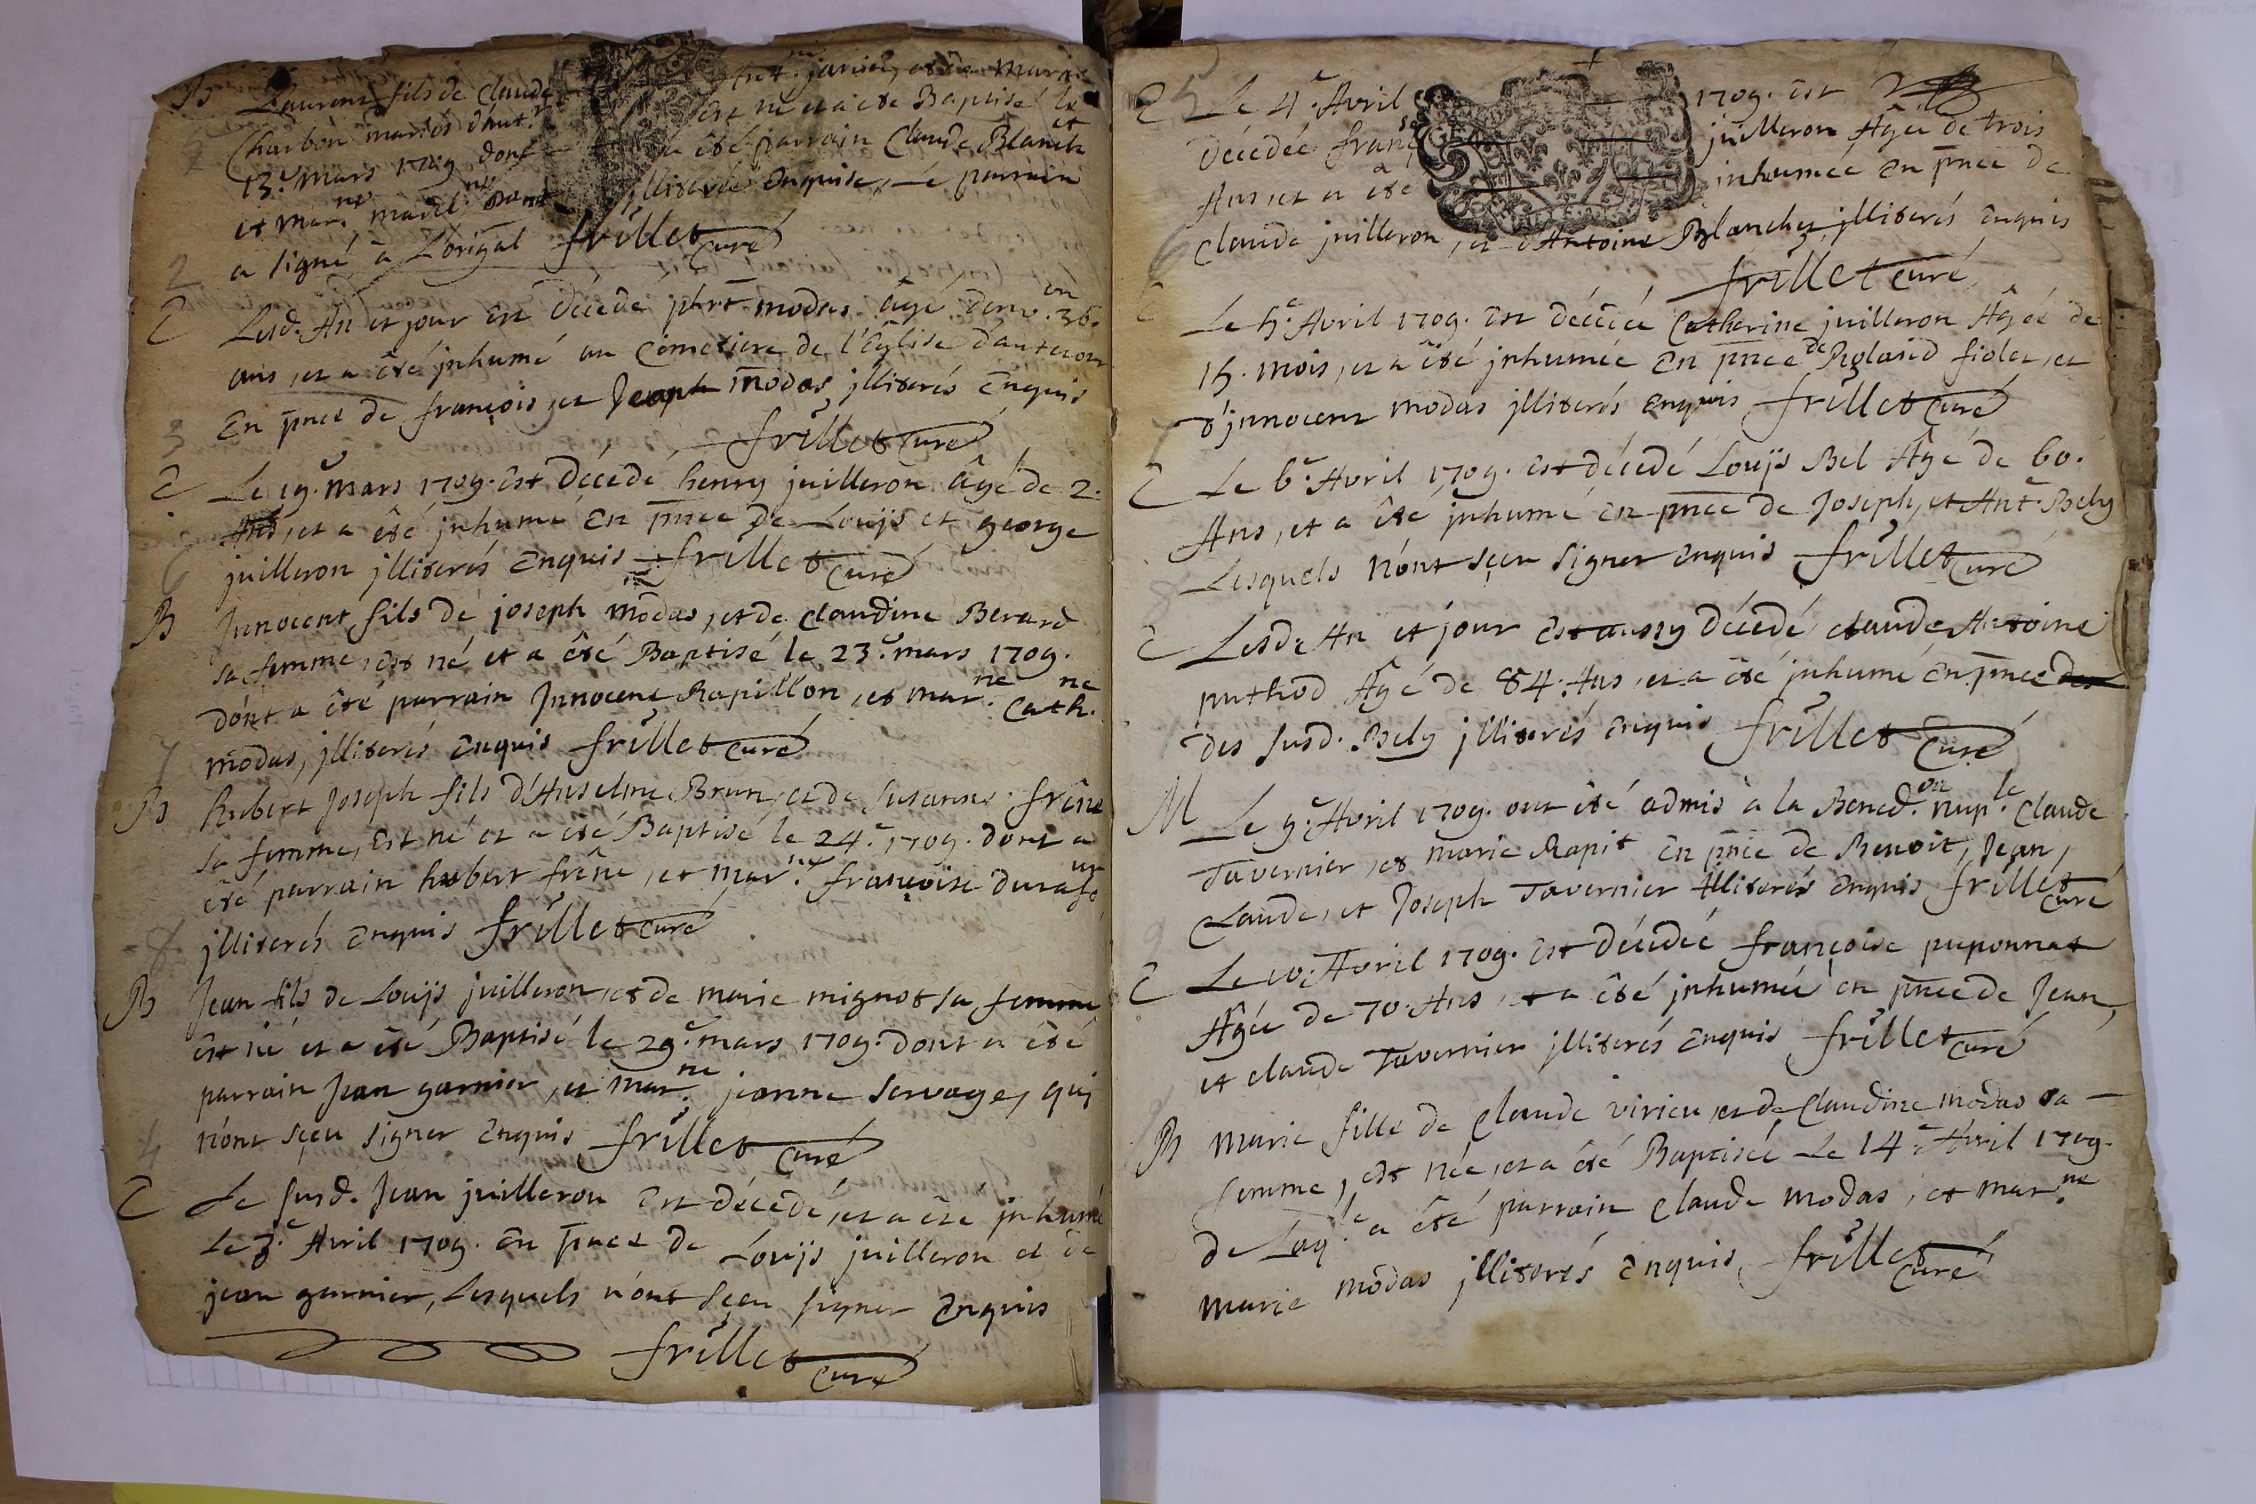 B Laurent fils de Claude Ant. janin, et de marie
Charbon mariés d'aut. est né et a été Baptisé le
13.e mars 1709 dont a été parrain Claude Blanch et
et mar.ne illiterée enquise, Le parrain
a signé à L'origal frillet curé
C Lesd. An et jour est décédé phrt modas âgé d'env.on 36.
ans, et a été inhumé au Cimetiere de l'Eglise d'autevon
En pnce de françois, et Joseph modas illiterés Enquis
frillet curé
C Le 19.e mars 1709. est décédé henry juilleron âgé de 2.
Ans, et a été jnhumé en pnce de Louys et george
juilleron jlliterés Enquis frillet curé
B Jnnocent fils de joseph modas, et de Claudine Berard
sa femme, est né et a été Baptisé le 23.e mars 1709.
dont a été parrain Jnnocent Rapillon, et mar.ne Cath.ne
modas, jlliterés Enquis frillet curé
B hubert Joseph fils d'Anselme Brun, et de Susanne frêne
sa femme, est né et a été Baptisé le 24.e 1709. dont a
été parrain hubert frêne, et mar.ne françoise
jlliterés Enquis frillet curé
B Jean fils de Louys juilleron, et de marie mignot sa femme
est né et a été Baptisé le 29.e mars 1709. dont a été
parrain Jean garnier, et mar.ne jeanne Servage, qui
n'ont sçeu signer Enquis frillet curé
C Le susd. Jean juilleron est décédé, et a été jnhumé
Le 3.e Avril 1709. En pnce de Louys juilleron et de
jean garnier, Lesquels n'ont sçeu signer Enquis
frillet curé
C Le 4.e Avril 1709. est
décédée franç.se juilleron Agée de trois
Ans, et a été inhumée En pnce de
Claude juilleron, et d'Antoine Blanchet jlliterés Enquis
frillet curé
C Le 5.e Avril 1709. est décédée Catherine juilleron Agée de
15. mois, et a été jnhumée En pnce de Rolaid fiolet, et
d'jnnocent modas jlliterés Enquis frillet curé
C Le 6.e Avril 1709. est décédé Louys Bel Agé de 60.
Ans, et a été jnhumé en pnce de Joseph, et Ant. Bely
Lesquels n'ont sçeu signer Enquis frillet curé
C Lesd. An et jour est aussy décédé claude Antoine
puthod Agé de 84. Ans, et a été jnhumé En pnce
des susd. Bely jlliterés Enquis frillet curé
M Le 9.e Avril 1709. ont été admis à la Bened.on nup.le Claude
Tavernier, et marie Rapit En pnce de Benoit, Jean,
Claude, et Joseph Tavernier jlliterés Enquis frillet curé
C Le 10.e Avril 1709. est décédée françoise puponnat
Agée de 70. Ans, et a été jnhumée en pnce de Jean,
et claude Tavernier jlliterés Enquis frillet curé
B Marie fille de Claude virieu, et de Claudine modas sa
femme, est née, et a été Baptisée Le 14.e Avril 1709.
de Laq.le a été parrain Claude modas, et mar.ne
marie modas jlliterés Enquis frillet curé